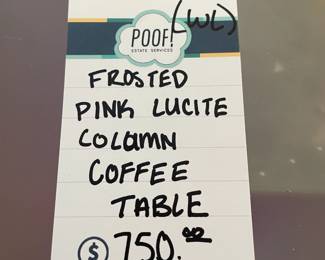 POOF! (WL)
ESTATE SERVICES
FROSTED
PINK LUCITE
COLUMN
COFFEE
TABLE
$ 750.00